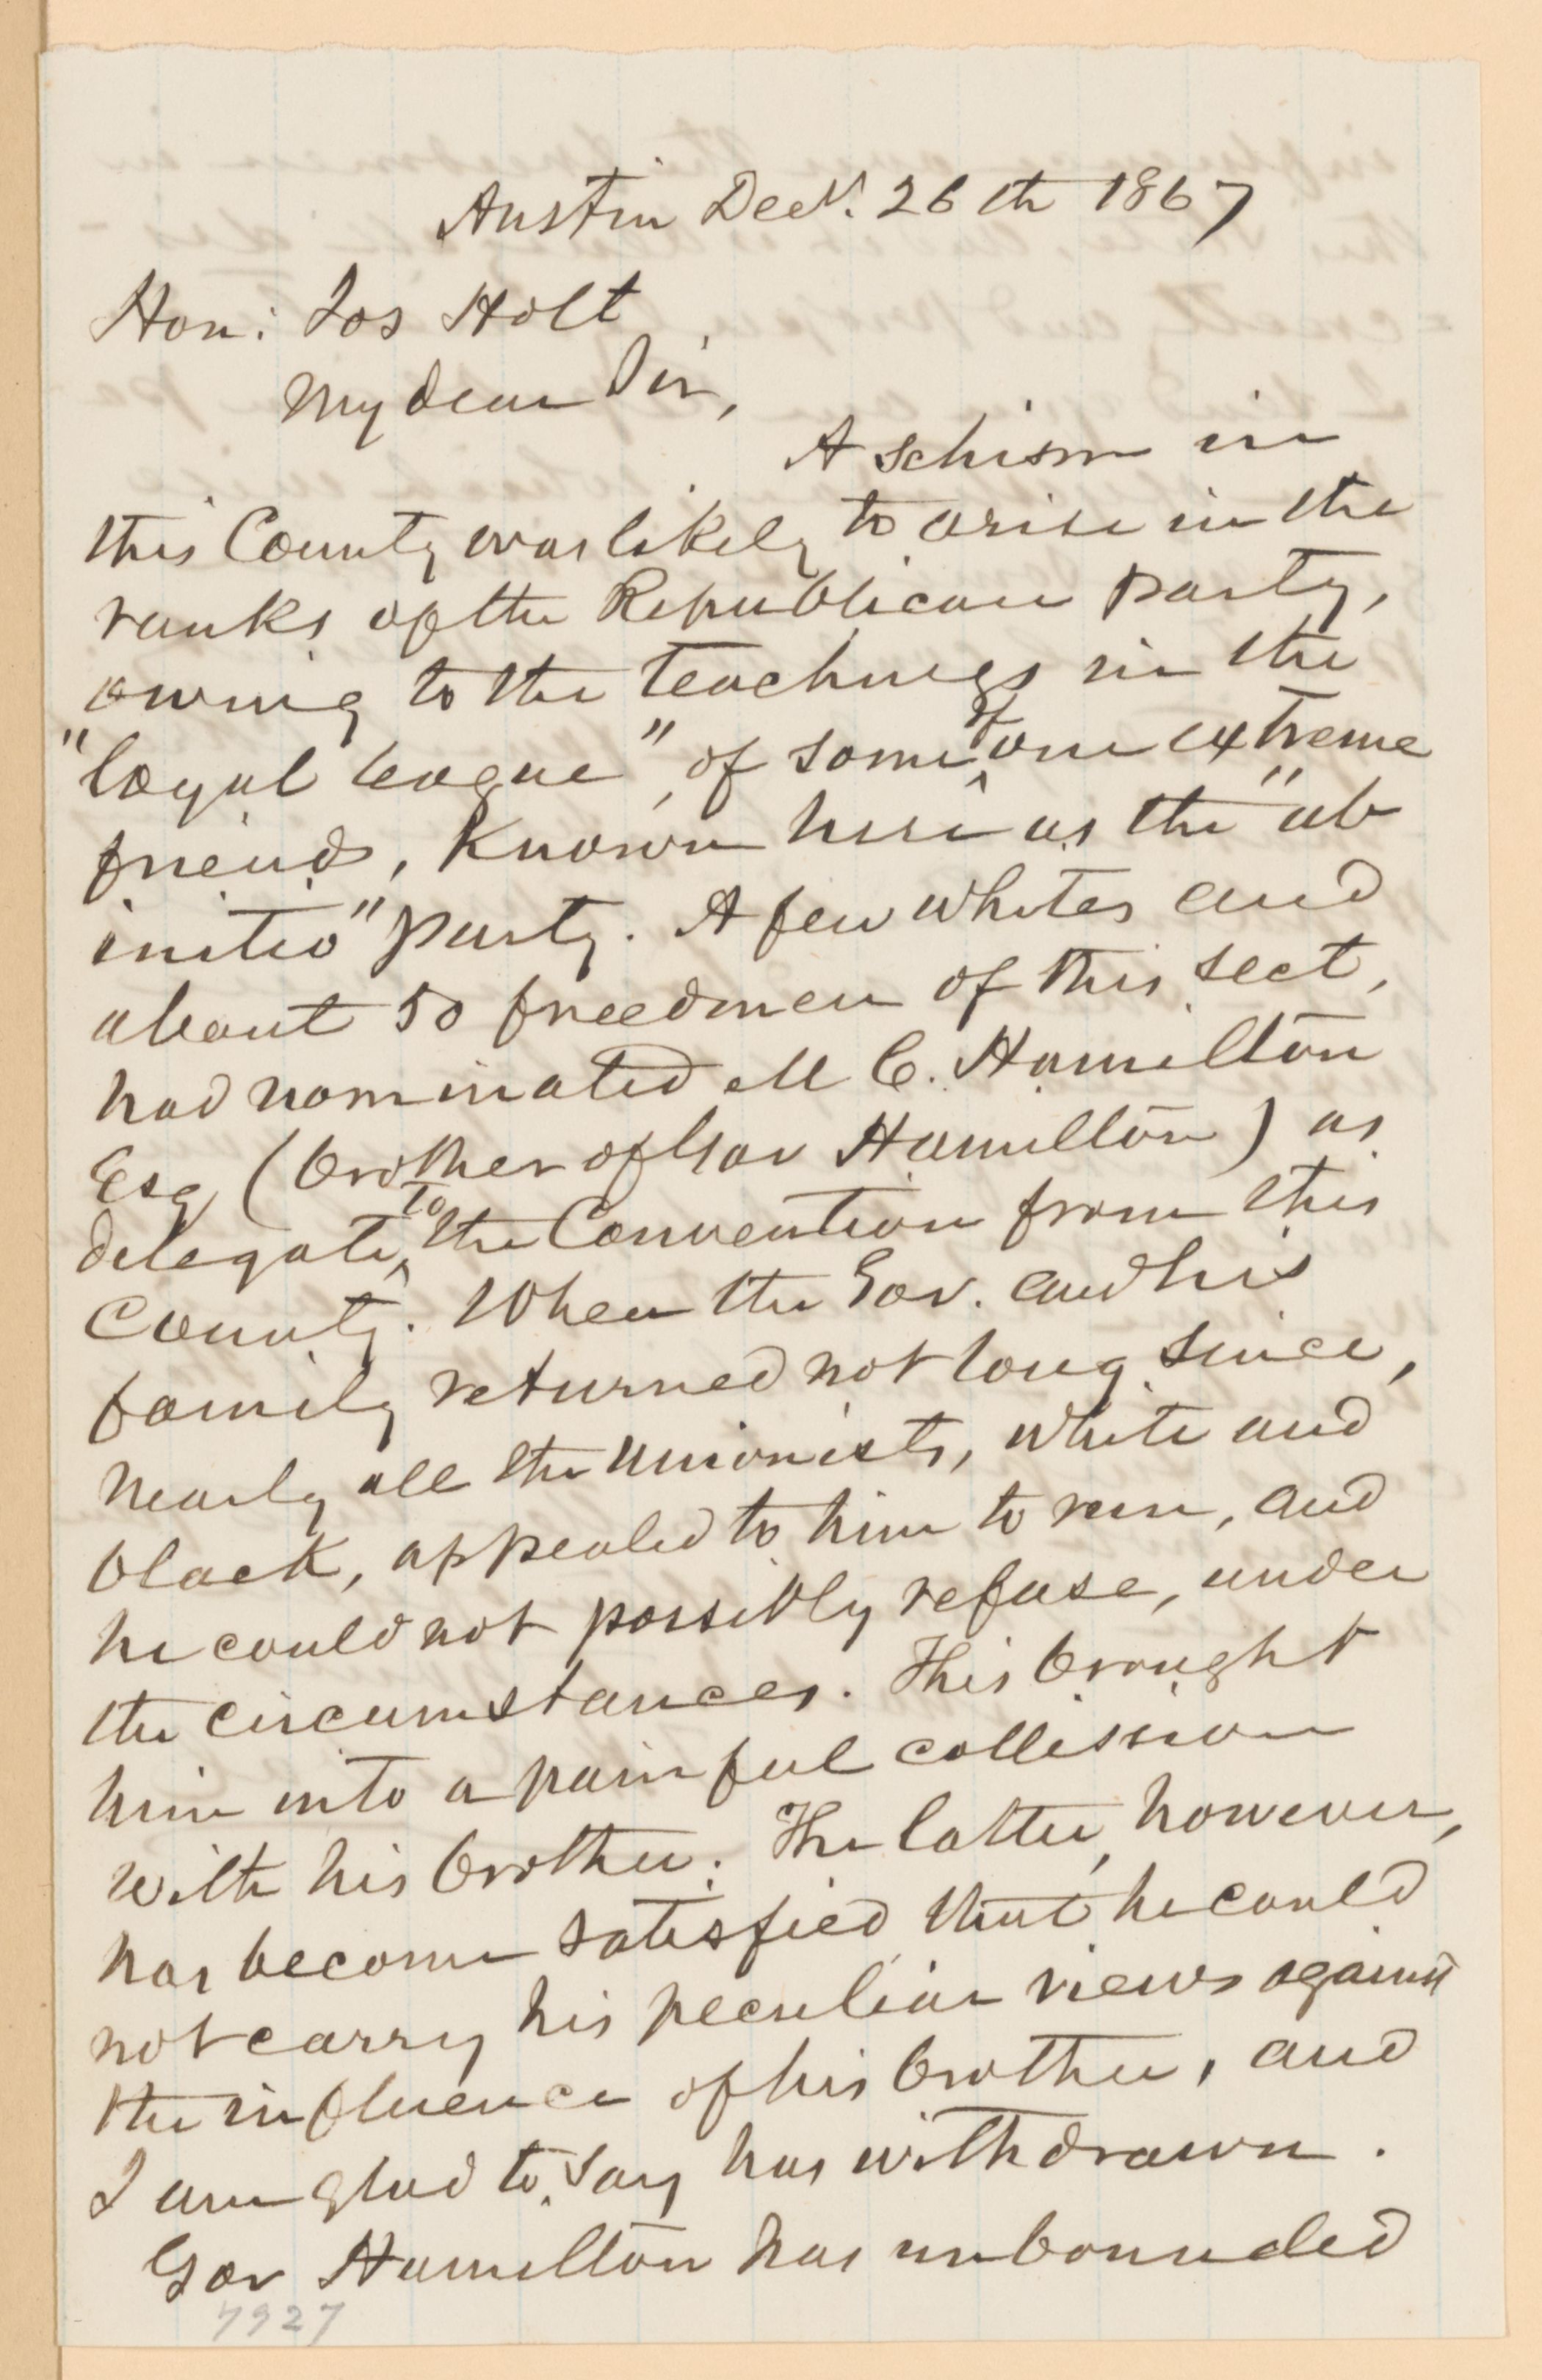 Austin Decr. 26th 1867
Hon: Jos Holt
My dear Sir,
A schism in
this County was likely to arise in the
ranks of the Republican party,
owing to the teachings in the
"loyal league", of some of our extreme
friends, known here as the "ab
initio" party. A few whites and
about 50 freedmen of this sect,
had nominated M C. Hamilton
Esq (brother of Gov Hamilton) as
delegate to the Convention from this
County. When the Gov. and his
family returned not long since,
nearly all the unionists, white and
black, appealed to him to run, and
he could not possibly refuse, under
the circumstances. This brought
him into a painful collission
with his brother. The latter, however,
has become satisfied that he could
not carry his peculiar views against
the influence of his brother, and
I am glad to say has withdrawn.
Gov Hamilton has unbounded
7927